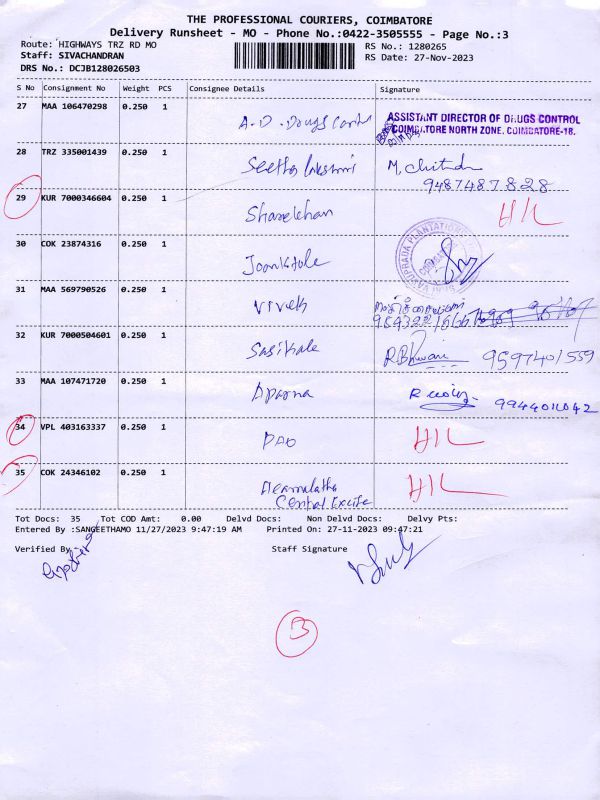 THE PROFESSIONAL COURIERS, COIMBATORE
Delivery Runsheet - MO - Phone No.:0422-3505555 - Page No.:3
Route: HIGHWAYS TRZ RD MO
RS No.: 1280265
Staff: SIVACHANDRAN
RS Date: 27-Nov-2023
DRS No.: DCJB128026503
S No Consignment No Weight PCS Consignee Details Signature
27 MAA 106470298 0.250 1
A.D. Drugs Control
ASSISTANT DIRECTOR OF DRUGS CONTROL
COIMBATORE NORTH ZONE, COIMBATORE-18.
28 TRZ 335001439 0.250 1
Seetha lakshmi M. Chitra
9487487828
29 KUR 7000346604 0.250 1
H/L
30 COK 23874316 0.250 1
31 MAA 569790526 0.250 1
Vivek
32 KUR 7000504601 0.250 1
Sasikala 9597401559
33 MAA 107471720 0.250 1
Aparna
34 VPL 403163337 0.250 1
DAO H/L
35 COK 24346102 0.250 1
H/L
Central Excise
Tot Docs: 35 Tot COD Amt: 0.00 Delvd Docs: Non Delvd Docs: Delvy Pts:
Entered By :SANGEETHAMO 11/27/2023 9:47:19 AM Printed On: 27-11-2023 09:47:21
Verified By Staff Signature
3